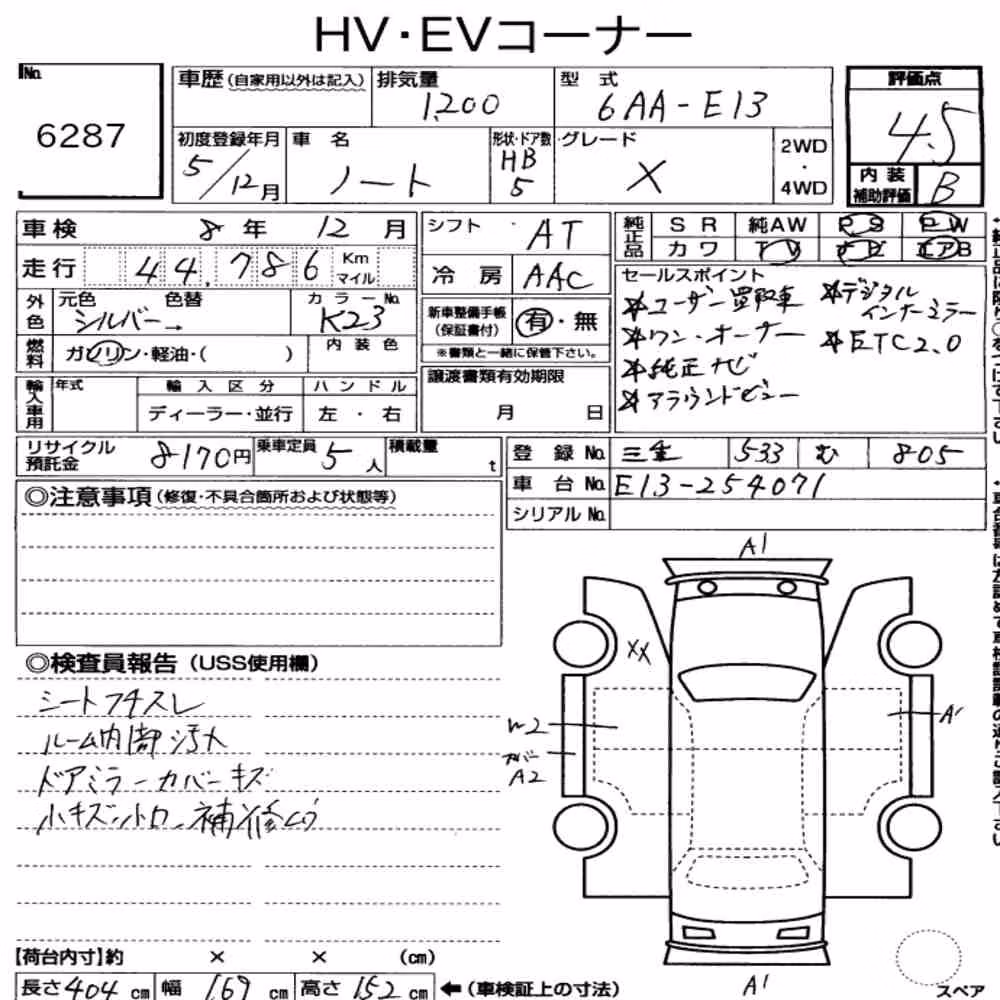 HV・EVコーナー
No.
6287
車歴(自家用以外は記入)
排気量
1,200
型式
6AA-E13
評価点
4.5
初度登録年月
5/12月
車名
ノート
形状・ドア数
HB
5
グレード
X
2WD
・
4WD
内装
補助評価
B
車検 8年 12月
シフト・AT
純正品
SR 純AW PS PW
カワ TV ナビ エアB
走行 44,786 Km マイル
冷房 AAC
セールスポイント
☆ユーザー買取車
☆ワン・オーナー
☆純正ナビ
☆アラウンドビュー
☆デジタル
インナーミラー
☆ETC2.0
外色
元色 色替
シルバー→
カラーNo.
K23
新車整備手帳
(保証書付)
有・無
※書類と一緒に保管下さい。
燃料
ガソリン・軽油・( )
内装色
輸入車用
年式
輸入区分
ディーラー・並行
ハンドル
左・右
譲渡書類有効期限
月 日
リサイクル
預託金
8170円
乗車定員 5人
積載量 t
登録No. 三重 533 む 805
車台No. E13-254071
シリアルNo.
◎注意事項(修復・不具合箇所および状態等)
◎検査員報告(USS使用欄)
シートフチスレ
ルーム内部汚大
ドアミラーカバーキズ
小キズ、ハトロ、補修有
A1
XX
W2
カバー
A2
A1
A1
スペア
【荷台内寸】約 × × (cm)
長さ404cm 幅169cm 高さ152cm ←(車検証上の寸法)